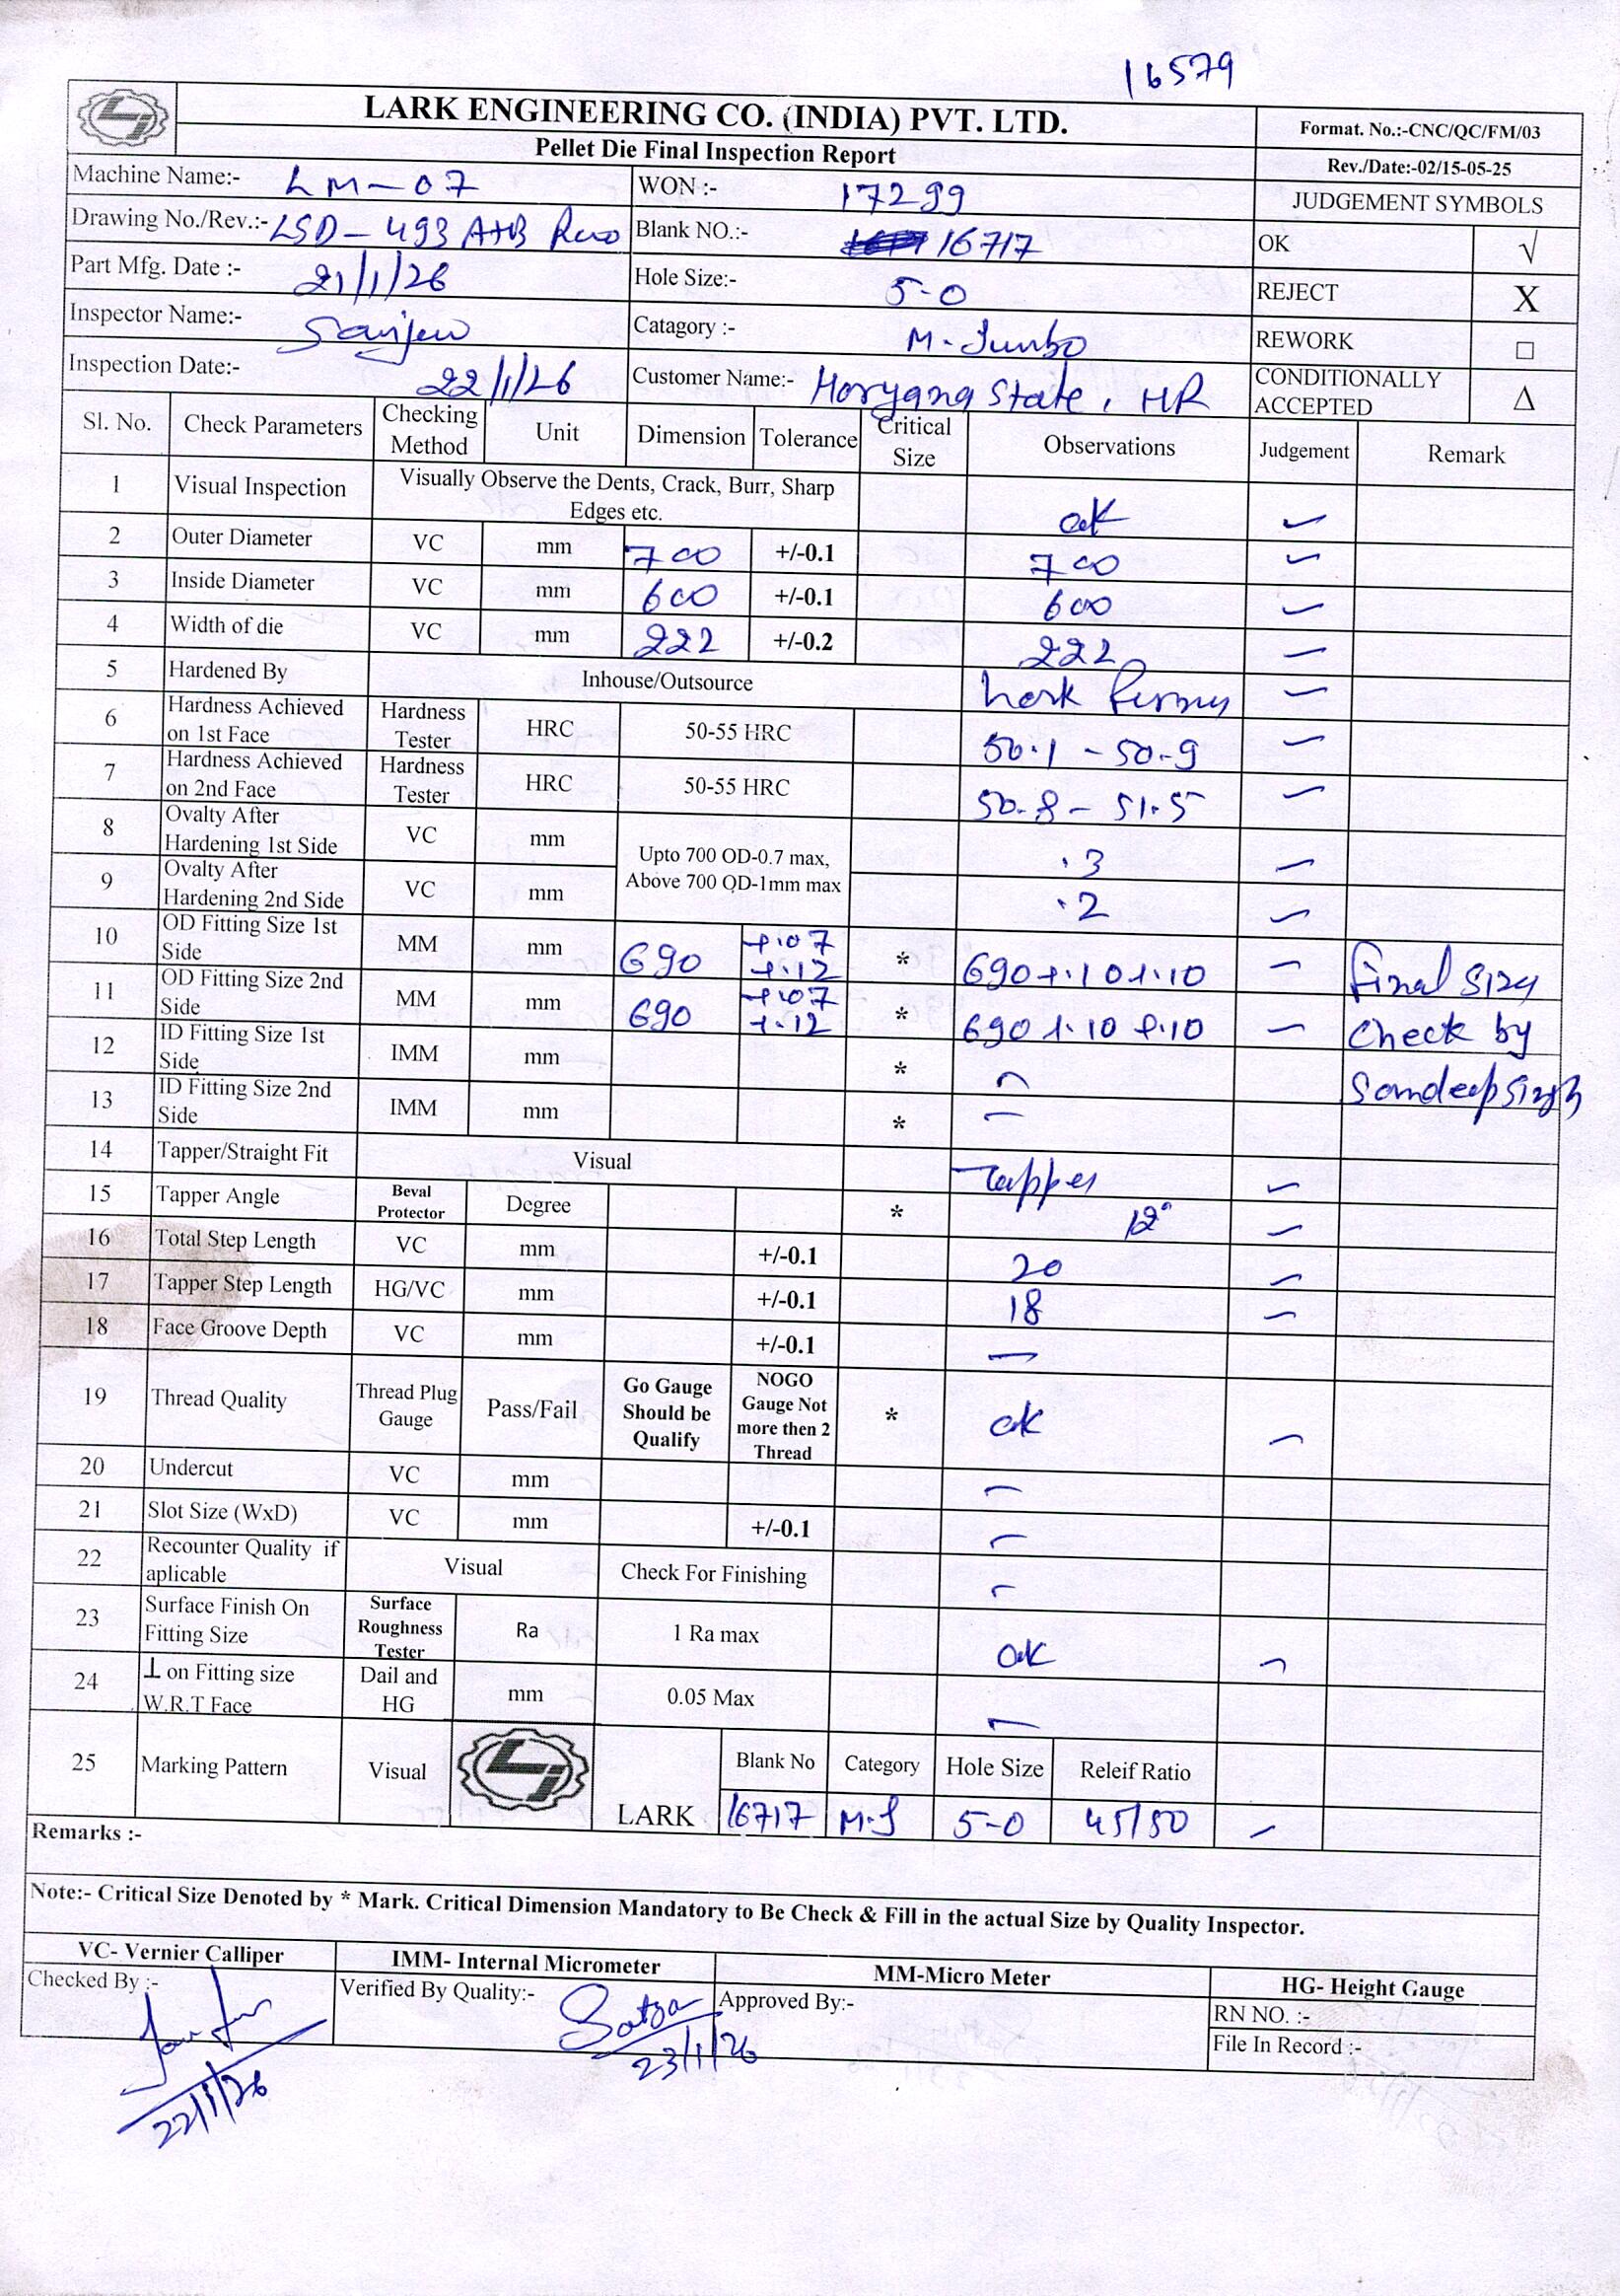 16579
LARK ENGINEERING CO. (INDIA) PVT. LTD.
Format. No.:-CNC/QC/FM/03
Pellet Die Final Inspection Report
Rev./Date:-02/15-05-25
Machine Name:- LM-07 WON :- 17299 JUDGEMENT SYMBOLS
Drawing No./Rev.:- LSD-493 A+B Blank NO.:- 16717 OK √
Part Mfg. Date :- 21/1/26 Hole Size:- 5-0 REJECT X
Inspector Name:- Sanjeev Catagory :- M-Jumbo REWORK □
Inspection Date:- 22/1/26 Customer Name:- Haryana State, HR CONDITIONALLY ACCEPTED Δ
Sl. No. Check Parameters Checking Method Unit Dimension Tolerance Critical Size Observations Judgement Remark
1 Visual Inspection Visually Observe the Dents, Crack, Burr, Sharp Edges etc. ok ✓
2 Outer Diameter VC mm 700 +/-0.1 700 ✓
3 Inside Diameter VC mm 600 +/-0.1 600 ✓
4 Width of die VC mm 222 +/-0.2 222 ✓
5 Hardened By Inhouse/Outsource Lark ✓
6 Hardness Achieved on 1st Face Hardness Tester HRC 50-55 HRC 50.1 - 50.9 ✓
7 Hardness Achieved on 2nd Face Hardness Tester HRC 50-55 HRC 50.8 - 51.5 ✓
8 Ovalty After Hardening 1st Side VC mm Upto 700 OD-0.7 max, Above 700 OD-1mm max .3 ✓
9 Ovalty After Hardening 2nd Side VC mm .2 ✓
10 OD Fitting Size 1st Side MM mm 690 +.07 +.12 * 690 +.10 +.10 ✓ Final Size
11 OD Fitting Size 2nd Side MM mm 690 +.07 +.12 * 690 +.10 +.10 ✓ Check by
12 ID Fitting Size 1st Side IMM mm * - Sandeep Singh
13 ID Fitting Size 2nd Side IMM mm * -
14 Tapper/Straight Fit Visual Tapper ✓
15 Tapper Angle Beval Protector Degree * 12° ✓
16 Total Step Length VC mm +/-0.1 20 ✓
17 Tapper Step Length HG/VC mm +/-0.1 18 ✓
18 Face Groove Depth VC mm +/-0.1 -
19 Thread Quality Thread Plug Gauge Pass/Fail Go Gauge Should be Qualify NOGO Gauge Not more then 2 Thread * ok ✓
20 Undercut VC mm -
21 Slot Size (WxD) VC mm +/-0.1 -
22 Recounter Quality if aplicable Visual Check For Finishing -
23 Surface Finish On Fitting Size Surface Roughness Tester Ra 1 Ra max ok ✓
24 ⊥ on Fitting size W.R.T Face Dail and HG mm 0.05 Max -
25 Marking Pattern Visual LARK Blank No Category Hole Size Releif Ratio
16717 M.J 5-0 45/50 ✓
Remarks :-
Note:- Critical Size Denoted by * Mark. Critical Dimension Mandatory to Be Check & Fill in the actual Size by Quality Inspector.
VC- Vernier Calliper IMM- Internal Micrometer MM-Micro Meter HG- Height Gauge
Checked By :- Verified By Quality:- Approved By:- RN NO. :-
File In Record :-
22/1/26 23/1/26